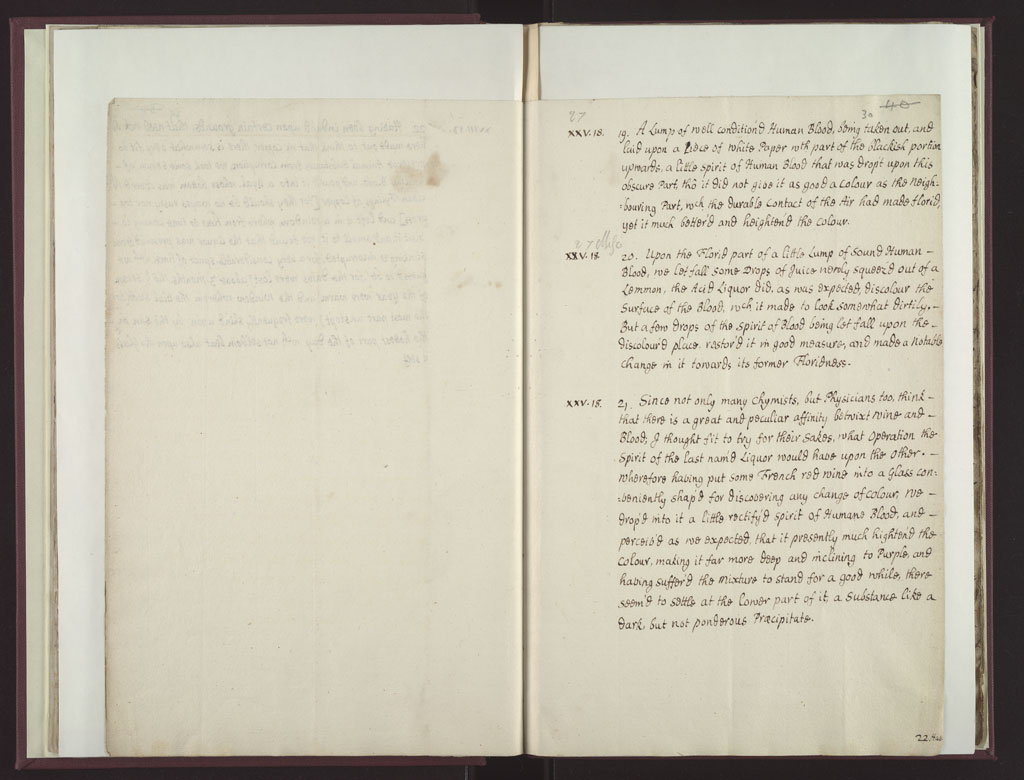 27
30
40
XXV. 18. 19. A Lump of well condition'd Human Blood, being taken out, and
laid upon a piece of white Paper wth part of the blackish portion
upwards, a little spirit of Human Blood that was dropt upon this
obscure Part, thô it did not give it as good a Colour as the Neigh-
=bouring Part, wch the durable Contact of the Air had made florid,
yet it much better'd and heighten'd the Colour.
XXV. 18. 20. Upon the Florid part of a little Lump of Sound Human –
Blood, we let fall some Drops of Juice newly squeez'd out of a
Lemmon, the Acid Liquor did, as was expected, discolour the
Surface of the Blood, wch it made to look somewhat dirtily. –
But a few drops of the Spirit of Blood being let fall upon the –
discolour'd place, restor'd it in good measure, and made a Notable
change in it towards its former Floridness.
XXV. 18. 21. Since not only many Chymists, but Physicians too, think –
that there is a great and peculiar affinity betwixt Wine and –
Blood, I thought fit to try for their Sakes, what Operation the
Spirit of the last nam'd Liquor would have upon the Other. –
wherefore having put some French red wine into a Glass con=
=veniently shap'd for discovering any change of Colour, we –
drop'd into it a little rectify'd spirit of Humane Blood, and –
perceiv'd as we expected, that it presently much highten'd the
Colour, making it far more deep and inclining to Purple, and
having suffer'd the mixture to stand for a good while, there
seem'd to settle at the lower part of it, a Substance like a
dark, but not ponderous Præcipitate.